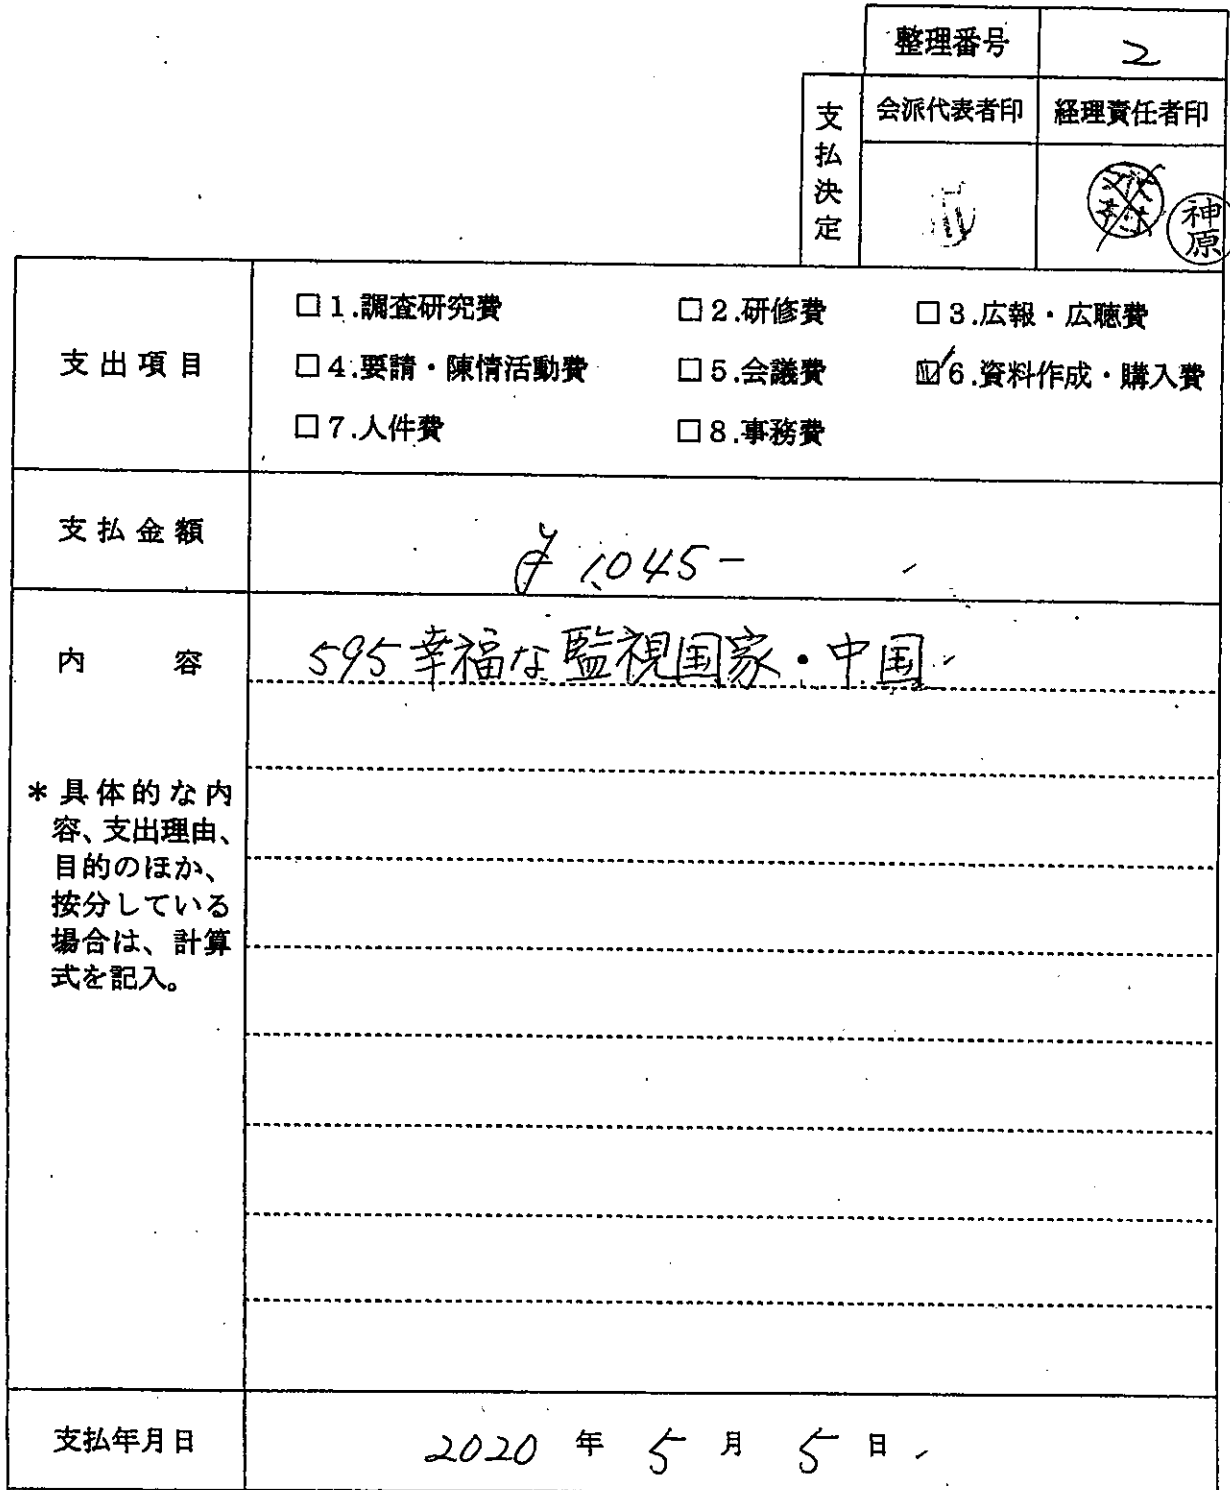 整理番号 2
支払決定
会派代表者印 経理責任者印
神原
支出項目
□1.調査研究費 □2.研修費 □3.広報・広聴費
□4.要請・陳情活動費 □5.会議費 ☑6.資料作成・購入費
□7.人件費 □8.事務費
支払金額
¥1,045-
内容
595幸福な監視国家・中国
*具体的な内
容、支出理由、
目的のほか、
按分している
場合は、計算
式を記入。
支払年月日 2020年5月5日